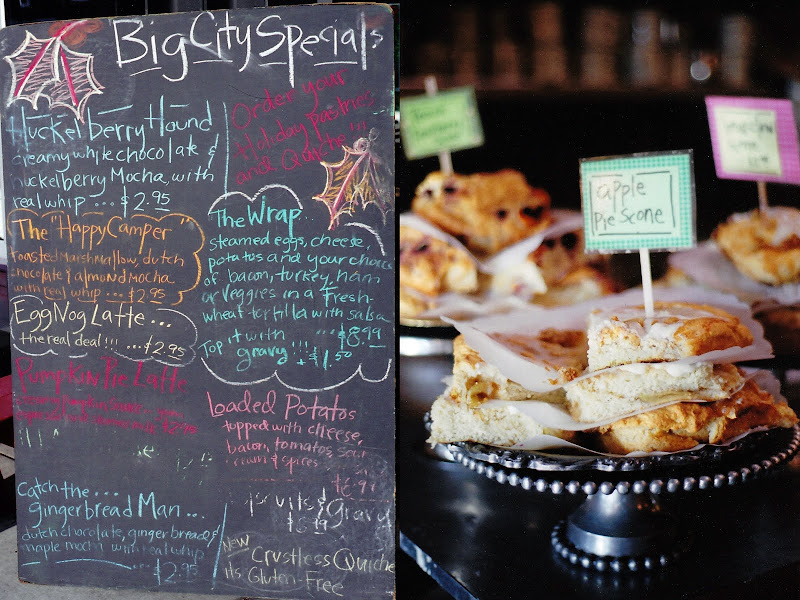 Big City Specials
Huckelberry Hound
creamy white chocolate &
huckelberry Mocha, with
real whip ... $2.95
The "Happy Camper"
roasted Marshmallow, dutch
chocolate & almond mocha
with real whip ... $2.95
EggNog Latte...
the real deal!!! ... $2.95
Pumpkin Pie Latte
$2.95
Catch the...
gingerbread Man...
dutch chocolate, gingerbread &
maple mocha with real whip
... $2.95
Order your
Holiday pastries
and Quiche!!!
The Wrap...
steamed eggs, cheese,
potatos and your choice
of bacon, turkey, ham
or veggies in a fresh
wheat tortilla with salsa
... $8.99
Top it with
gravy!!! + $1.50
Loaded Potatos
topped with cheese,
bacon, tomatos, sour
cream & spices
& gravy
New Crustless Quiche
its Gluten-Free
apple
pie scone